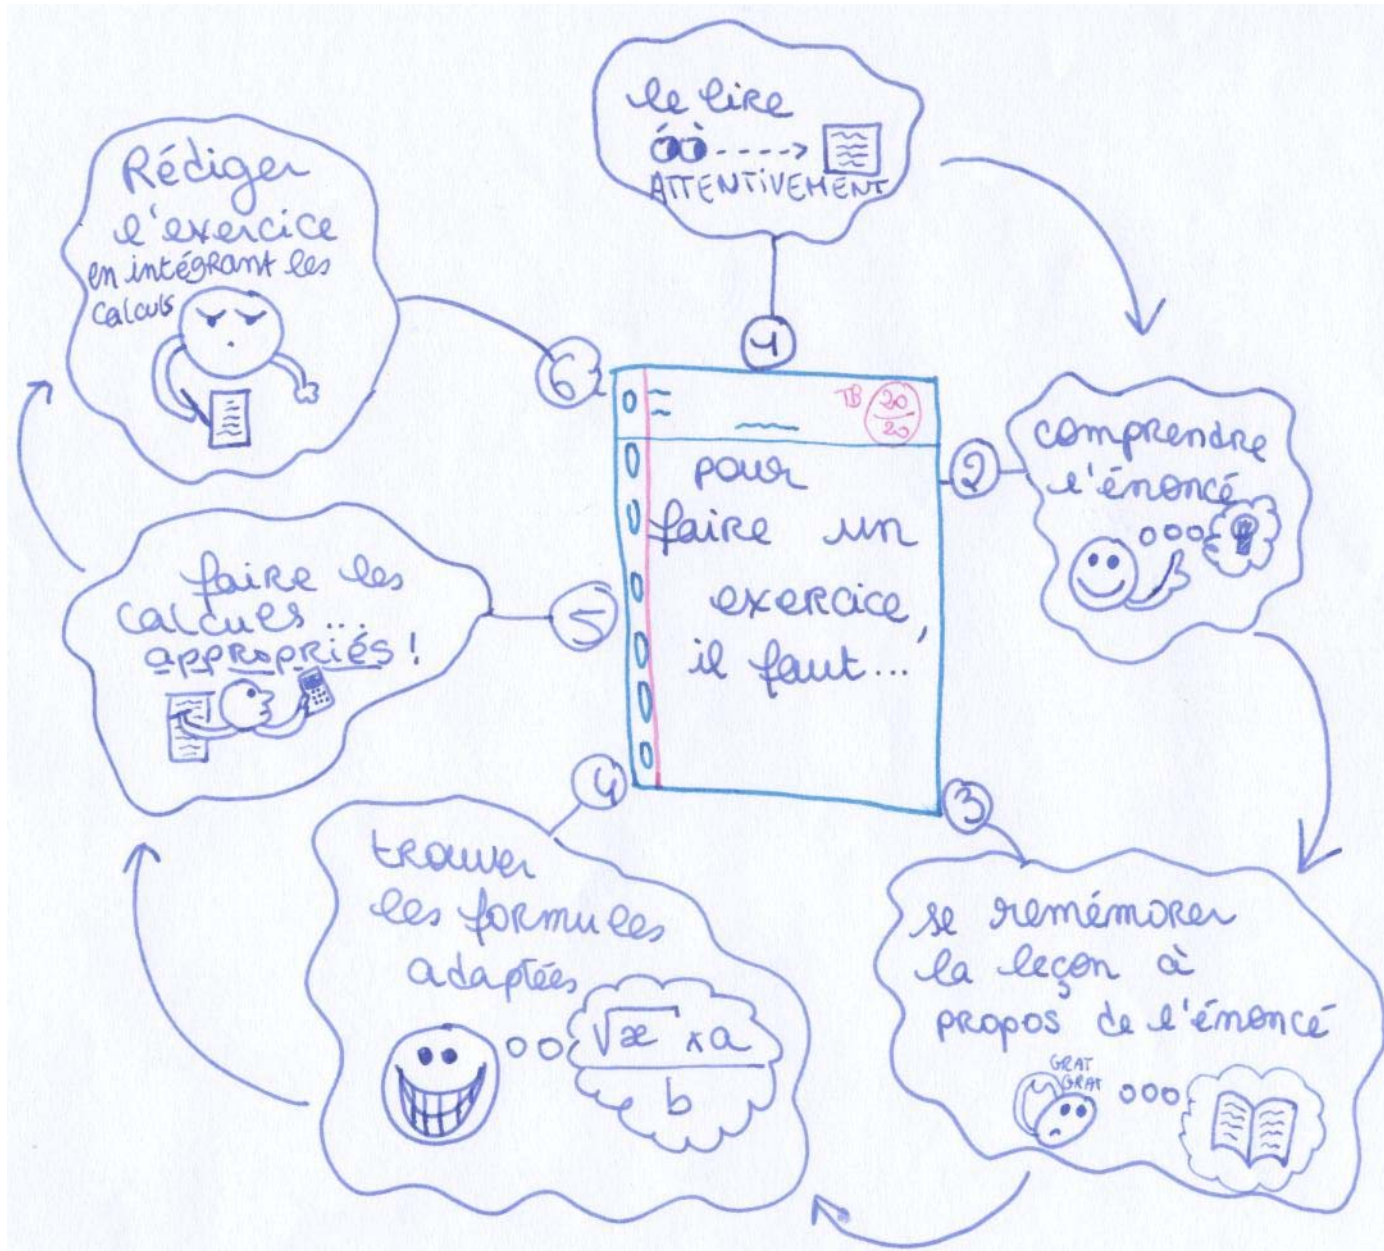 pour
faire un
exercice,
il faut...
TB 20
20
1
le lire
ATTENTIVEMENT
2
comprendre
l'énoncé
3
se remémorer
la leçon à
propos de l'énoncé
GRAT
GRAT
4
trouver
les formules
adaptées
√x x a
b
5
faire les
calculs...
appropriés !
6
Rédiger
l'exercice
en intégrant les
calculs